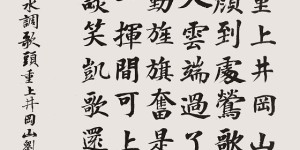 重上井岡山
顏到處鶯歌
入雲端過了
動旌旗奮是
揮間可上
談笑凱歌還
水調歌頭重上井岡山劉